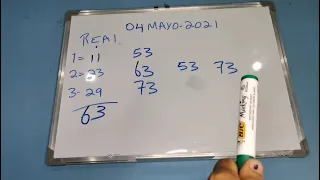 04 MAYO-2021
REAL
1= 11 53
2= 23 63 53 73
3- 29 73
63
BIC Marking